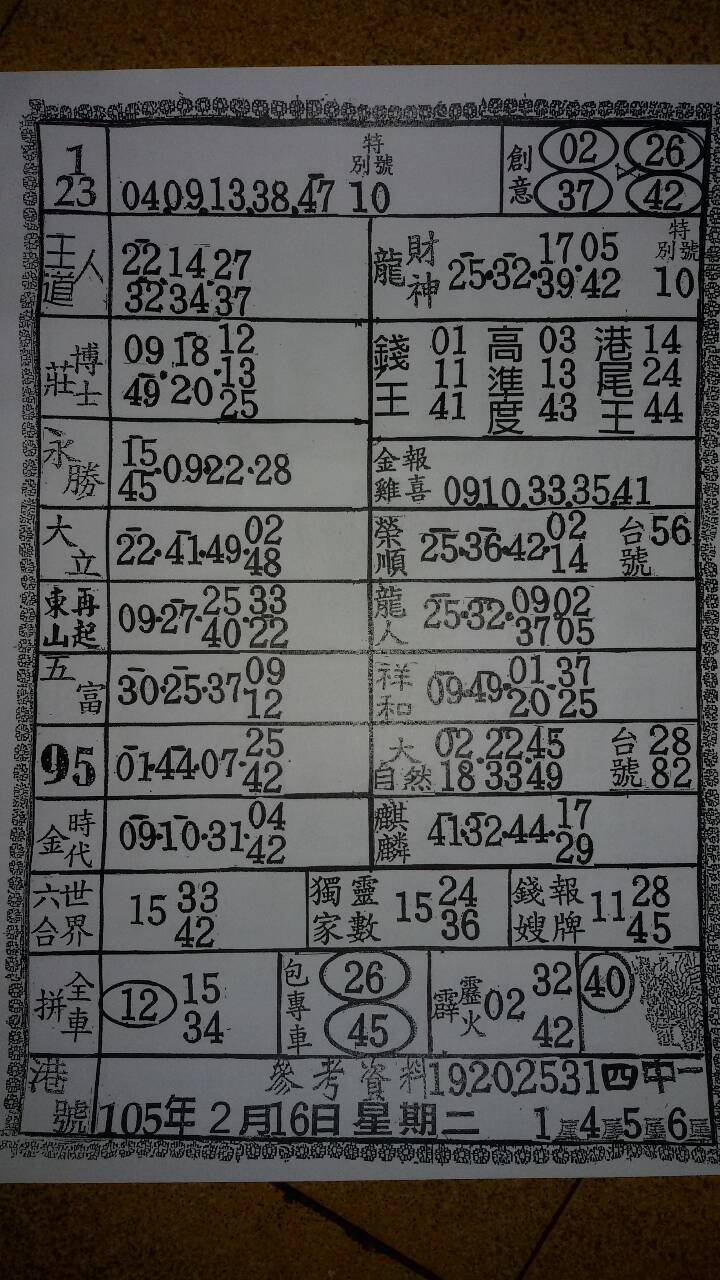 1 特 創 02 26
23 04.09.13.38.47 別號 10 意 37 42
王人道 22.14.27
32.34.37
龍財神 17 05 特
25.32.39.42 別號 10
莊博士 09.18.12
49.20.13
25
錢王 01 高準度 03 港尾王 14
11 13 24
41 43 44
永勝 15
45.09.22.28
金雞報喜 09.10.33.35.41
大立 22.41.49.02
48
榮順 25.36.42.02 台號 56
14
東山再起 09.27.25.33
40.22
龍人 25.32.09.02
37.05
五富 30.25.37.09
12
祥和 09.49.01.37
20.25
95 01.44.07.25
42
大自然 02.22.45 台號 28
18.33.49 82
金時代 09.10.31.04
42
麒麟 41.32.44.17
29
六合世界 15 33
42
獨家靈數 15 24
36
錢嫂報牌 11 28
45
拼全車 12 15
34
包專車 26
45
霹靂火 02 32
42
40
港號 參考資料 19.20.25.31 四中一
105年2月16日星期二 1尾4尾5尾6尾